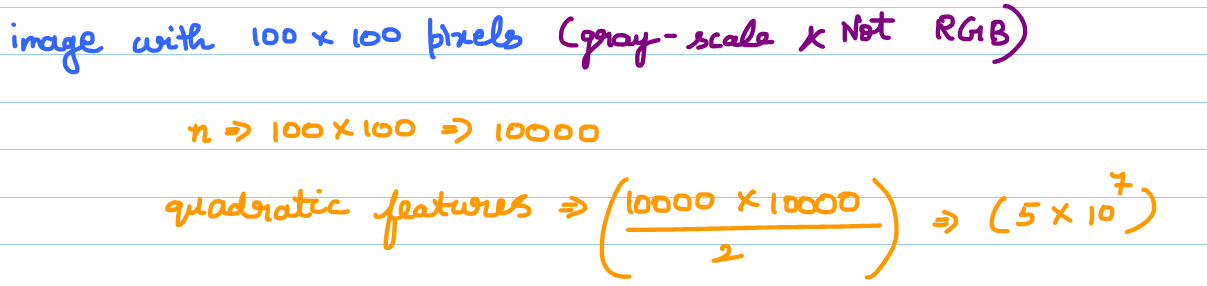 image with 100 x 100 pixels (gray-scale & Not RGB)
n ⇒ 100 × 100 ⇒ 10000
quadratic features ⇒ (10000 × 10000 / 2) ⇒ (5 × 10^7)